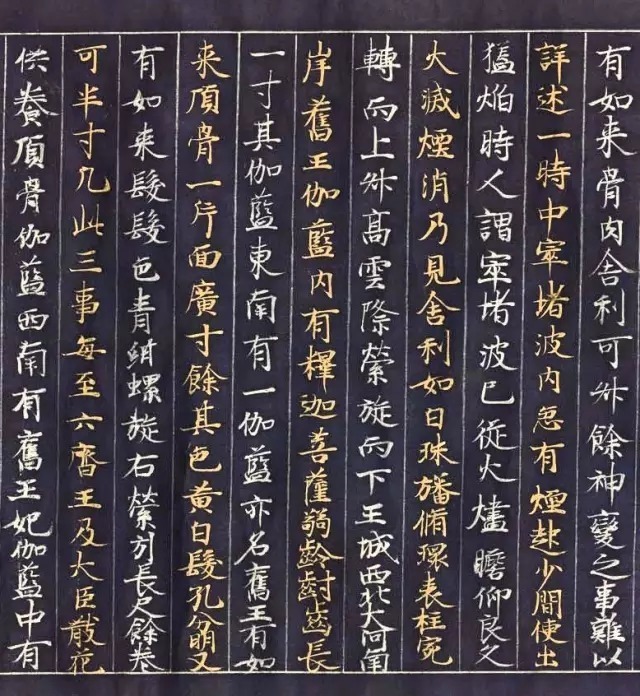 有如来骨肉舎利可升餘神變之事難以
詳述一時中窣堵波内忽有煙起少間便出
猛焰時人謂窣堵波已従火燼瞻仰良久
火滅煙消乃見舎利如白珠旛循環表柱宛
轉而上升高雲際縈旋而下王城西北大河南
岸舊王伽藍内有釋迦菩薩弱齡齠齒長
一寸其伽藍東南有一伽藍亦名舊王有如
来頂骨一片面廣寸餘其色黄白髮孔分明又
有如来髮髮色青紺螺旋右縈引長尺餘卷
可半寸凡此三事每至六齋王及大臣散花
供養頂骨伽藍西南有舊王妃伽藍中有